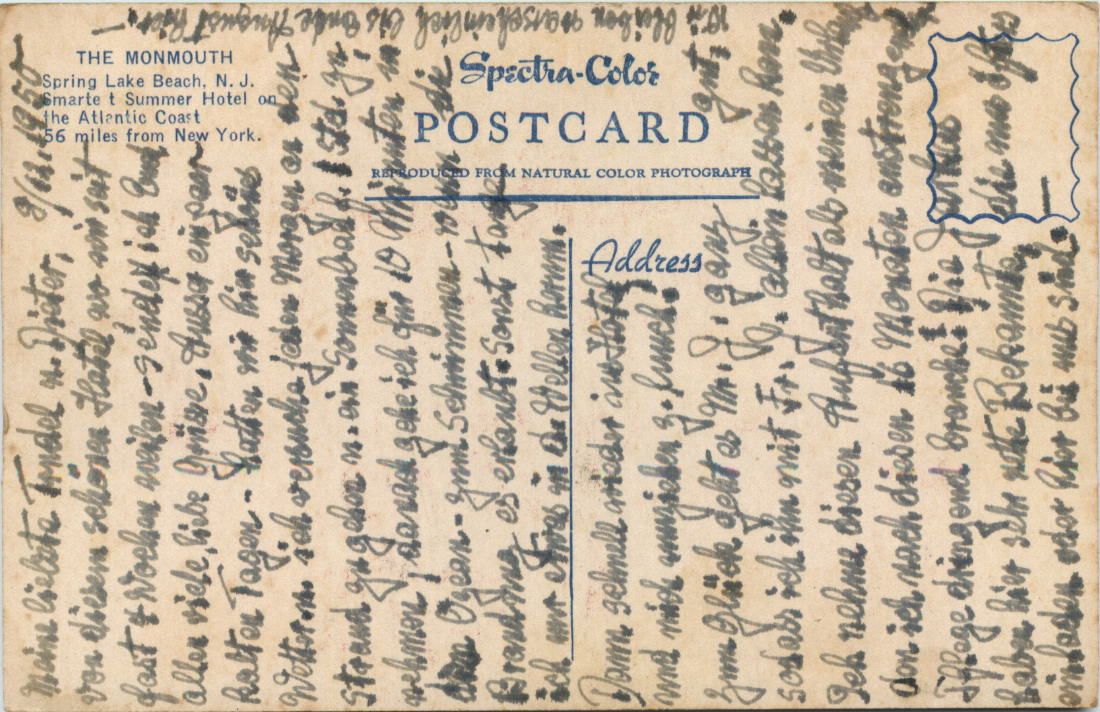 THE MONMOUTH
Spring Lake Beach, N. J.
Smarte t Summer Hotel on
the Atlantic Coast
56 miles from New York.
Spectra-Color
POSTCARD
REPRODUCED FROM NATURAL COLOR PHOTOGRAPH
Address
Meine liebste Trudel u. Dieter,
von diesen schönen Hotel wo wir seit
fast 4 Wochen weilen - sende ich Euch
allen viele, liebe Grüsse. Ausser ein paar
kalten Tagen - hatten wir hier schönes
Wetter u. ich versuche jeden Morgen an den
Strand zu gehen u. ein Sonnenbad 1 Std. zu
nehmen, danach gehe ich für 10 Minuten in
Ozean - zum Schwimmen - wenn die
Brandung es erlaubt. Sonst
ich nur etwas in den Wellen herum.
Dann schnell wieder ins Hotel
und mich umziehen z. Lunch!
Zum Glück geht es Mr. J. ganz gut,
sodass ich ihn mit Fr. J. allein lassen kann
Ich nehme diesen Aufenthalt als meinen Urlaub
den ich nach diesen 10 Monaten anstrengende
Pflege dringend brauche. Die
haben hier sehr nette Bekannte, die uns öfters
einladen oder hier bei uns sind. —
Wir bleiben warscheinlich bis ende August hier